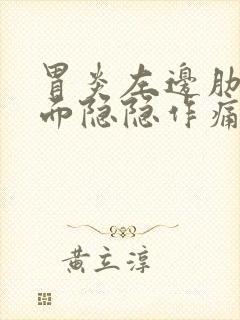 胃炎左邊肋
而隐隐作痛
黄立淳